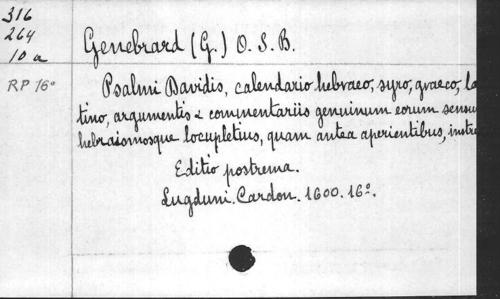 316
264
10 a
Genebrard (G.) O. S. B.
RP 16º
Psalmi Davidis, calendario hebraeo, syro, graeco, la
tino, argumentis & commentariis genuinum eorum sensu
hebraismosque locupletius, quam antea aperientibus, instre
Editio postrema.
Lugduni. Cardon. 1600. 16º.